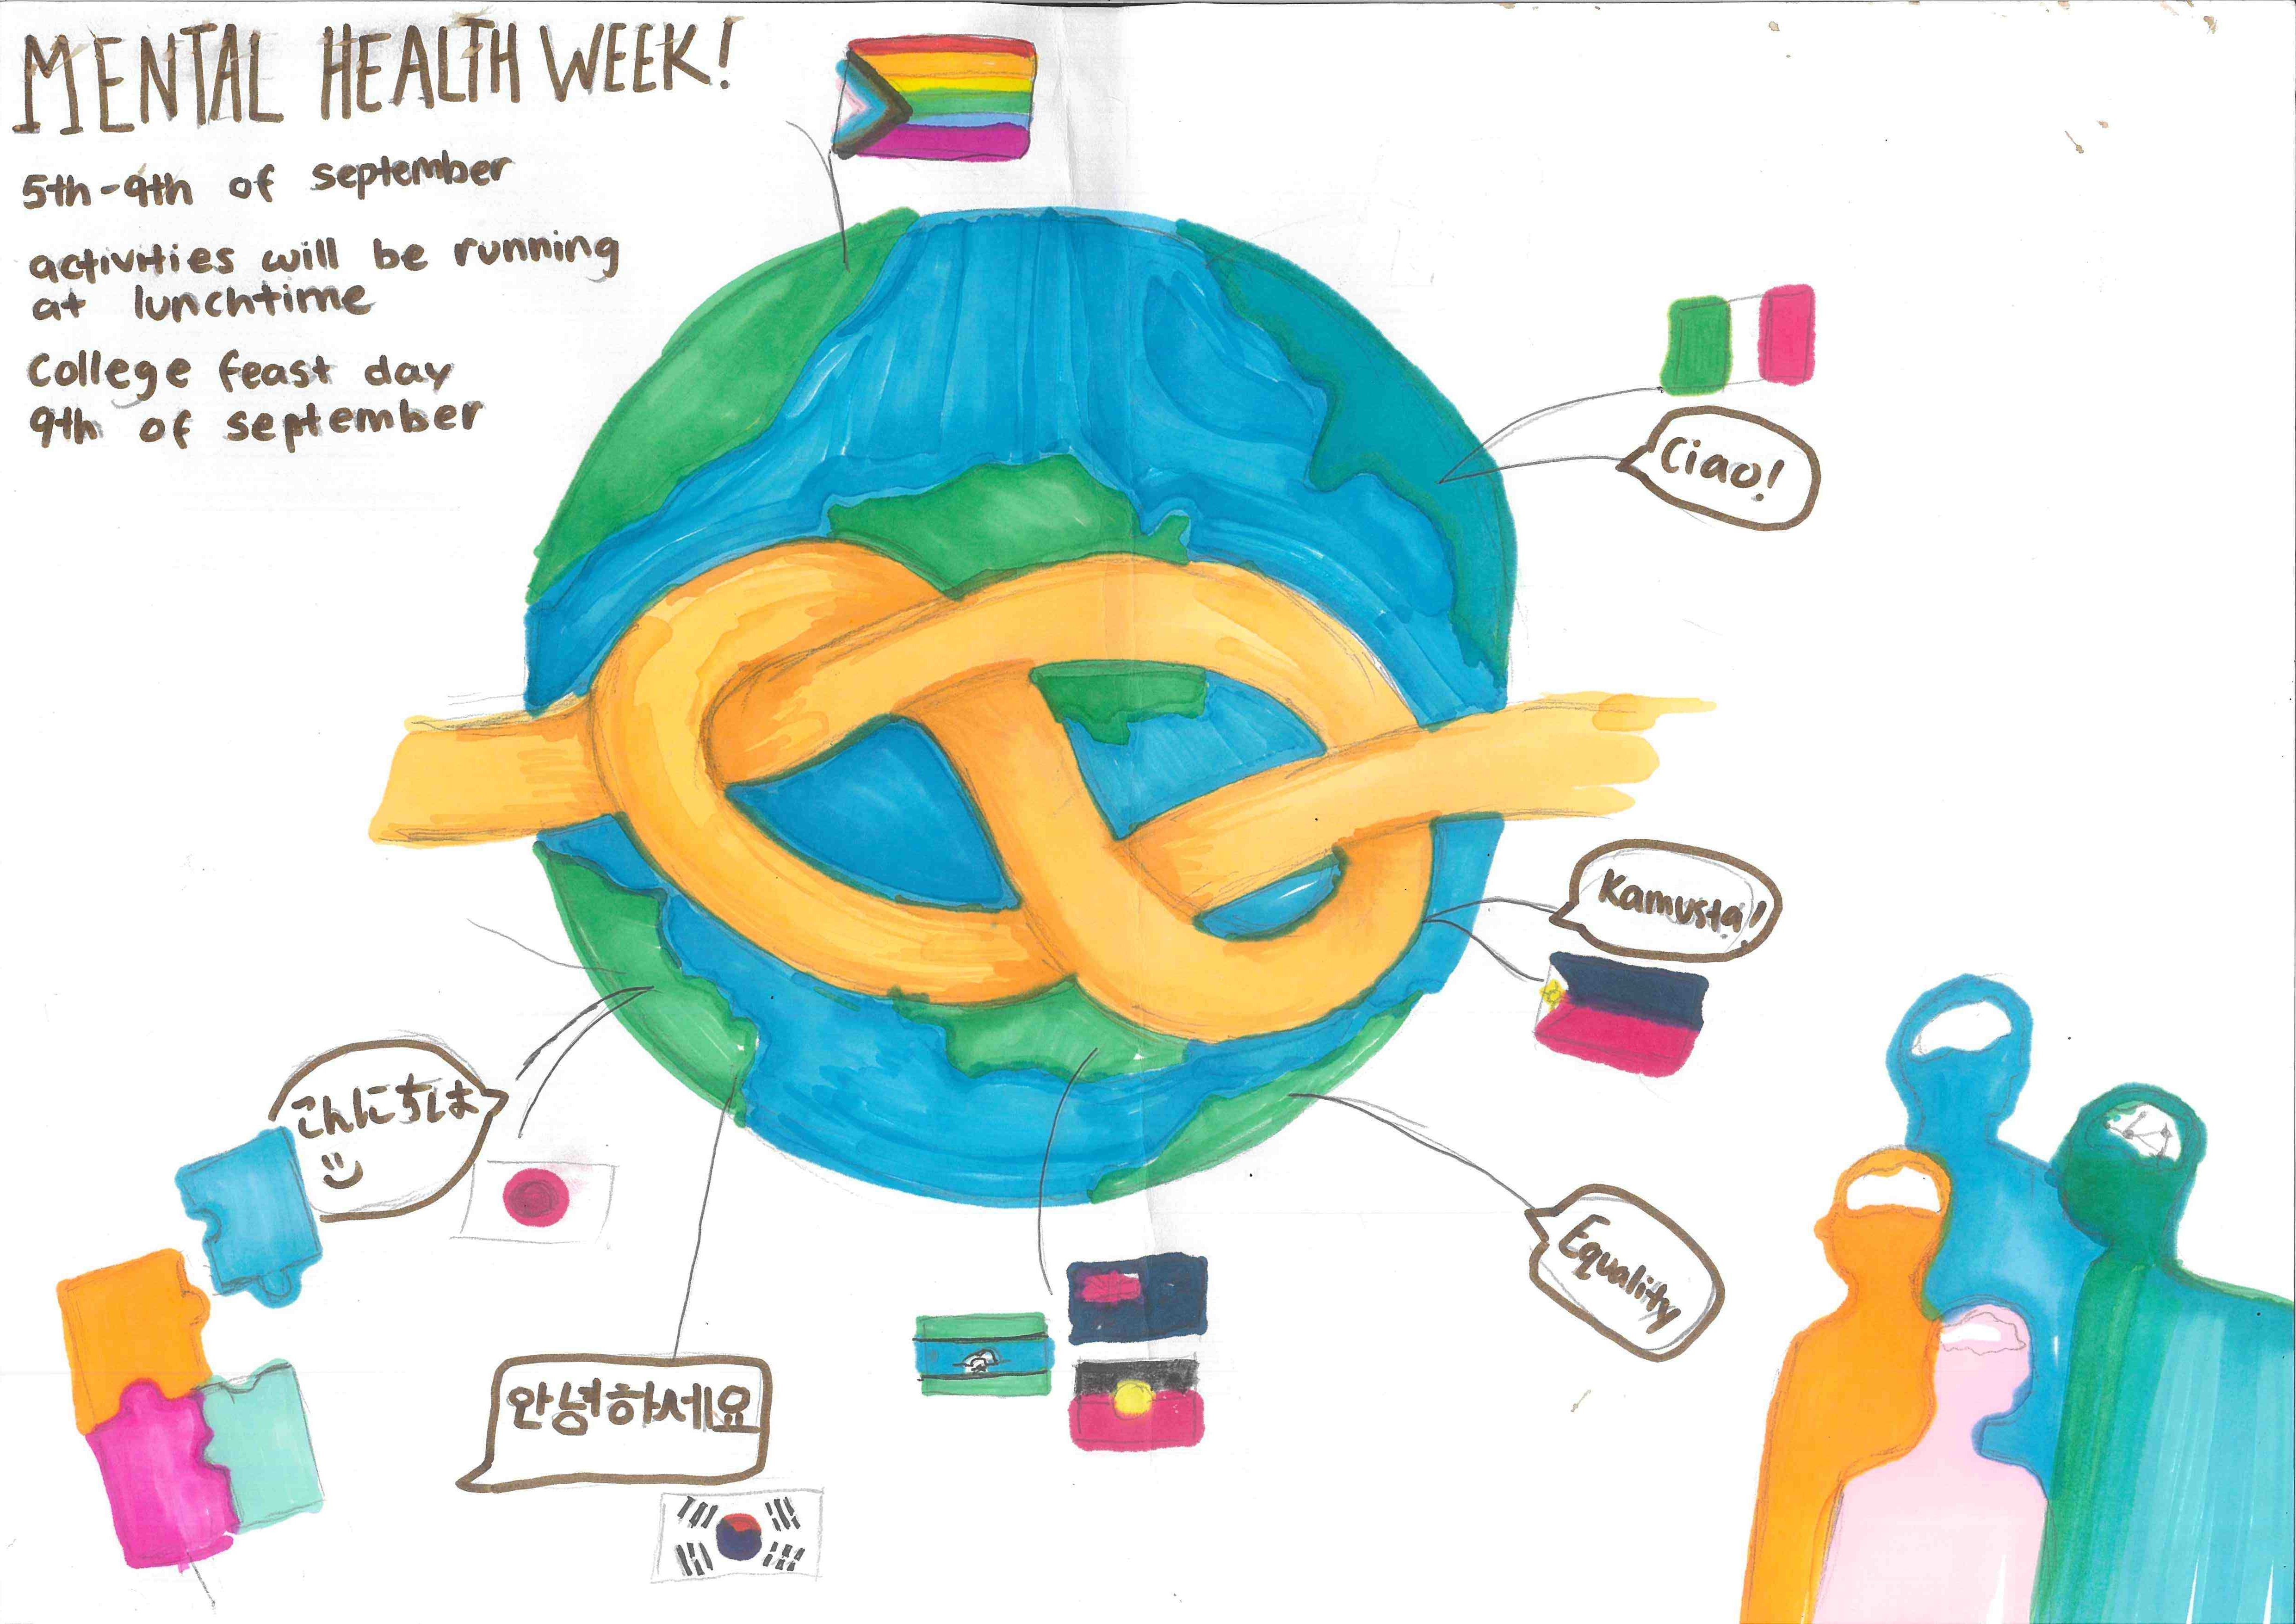 MENTAL HEALTH WEEK!
5th-9th of september
activities will be running
at lunchtime
College feast day
9th of september
Ciao!
Kamusta!
こんにちは
Equality
안녕하세요